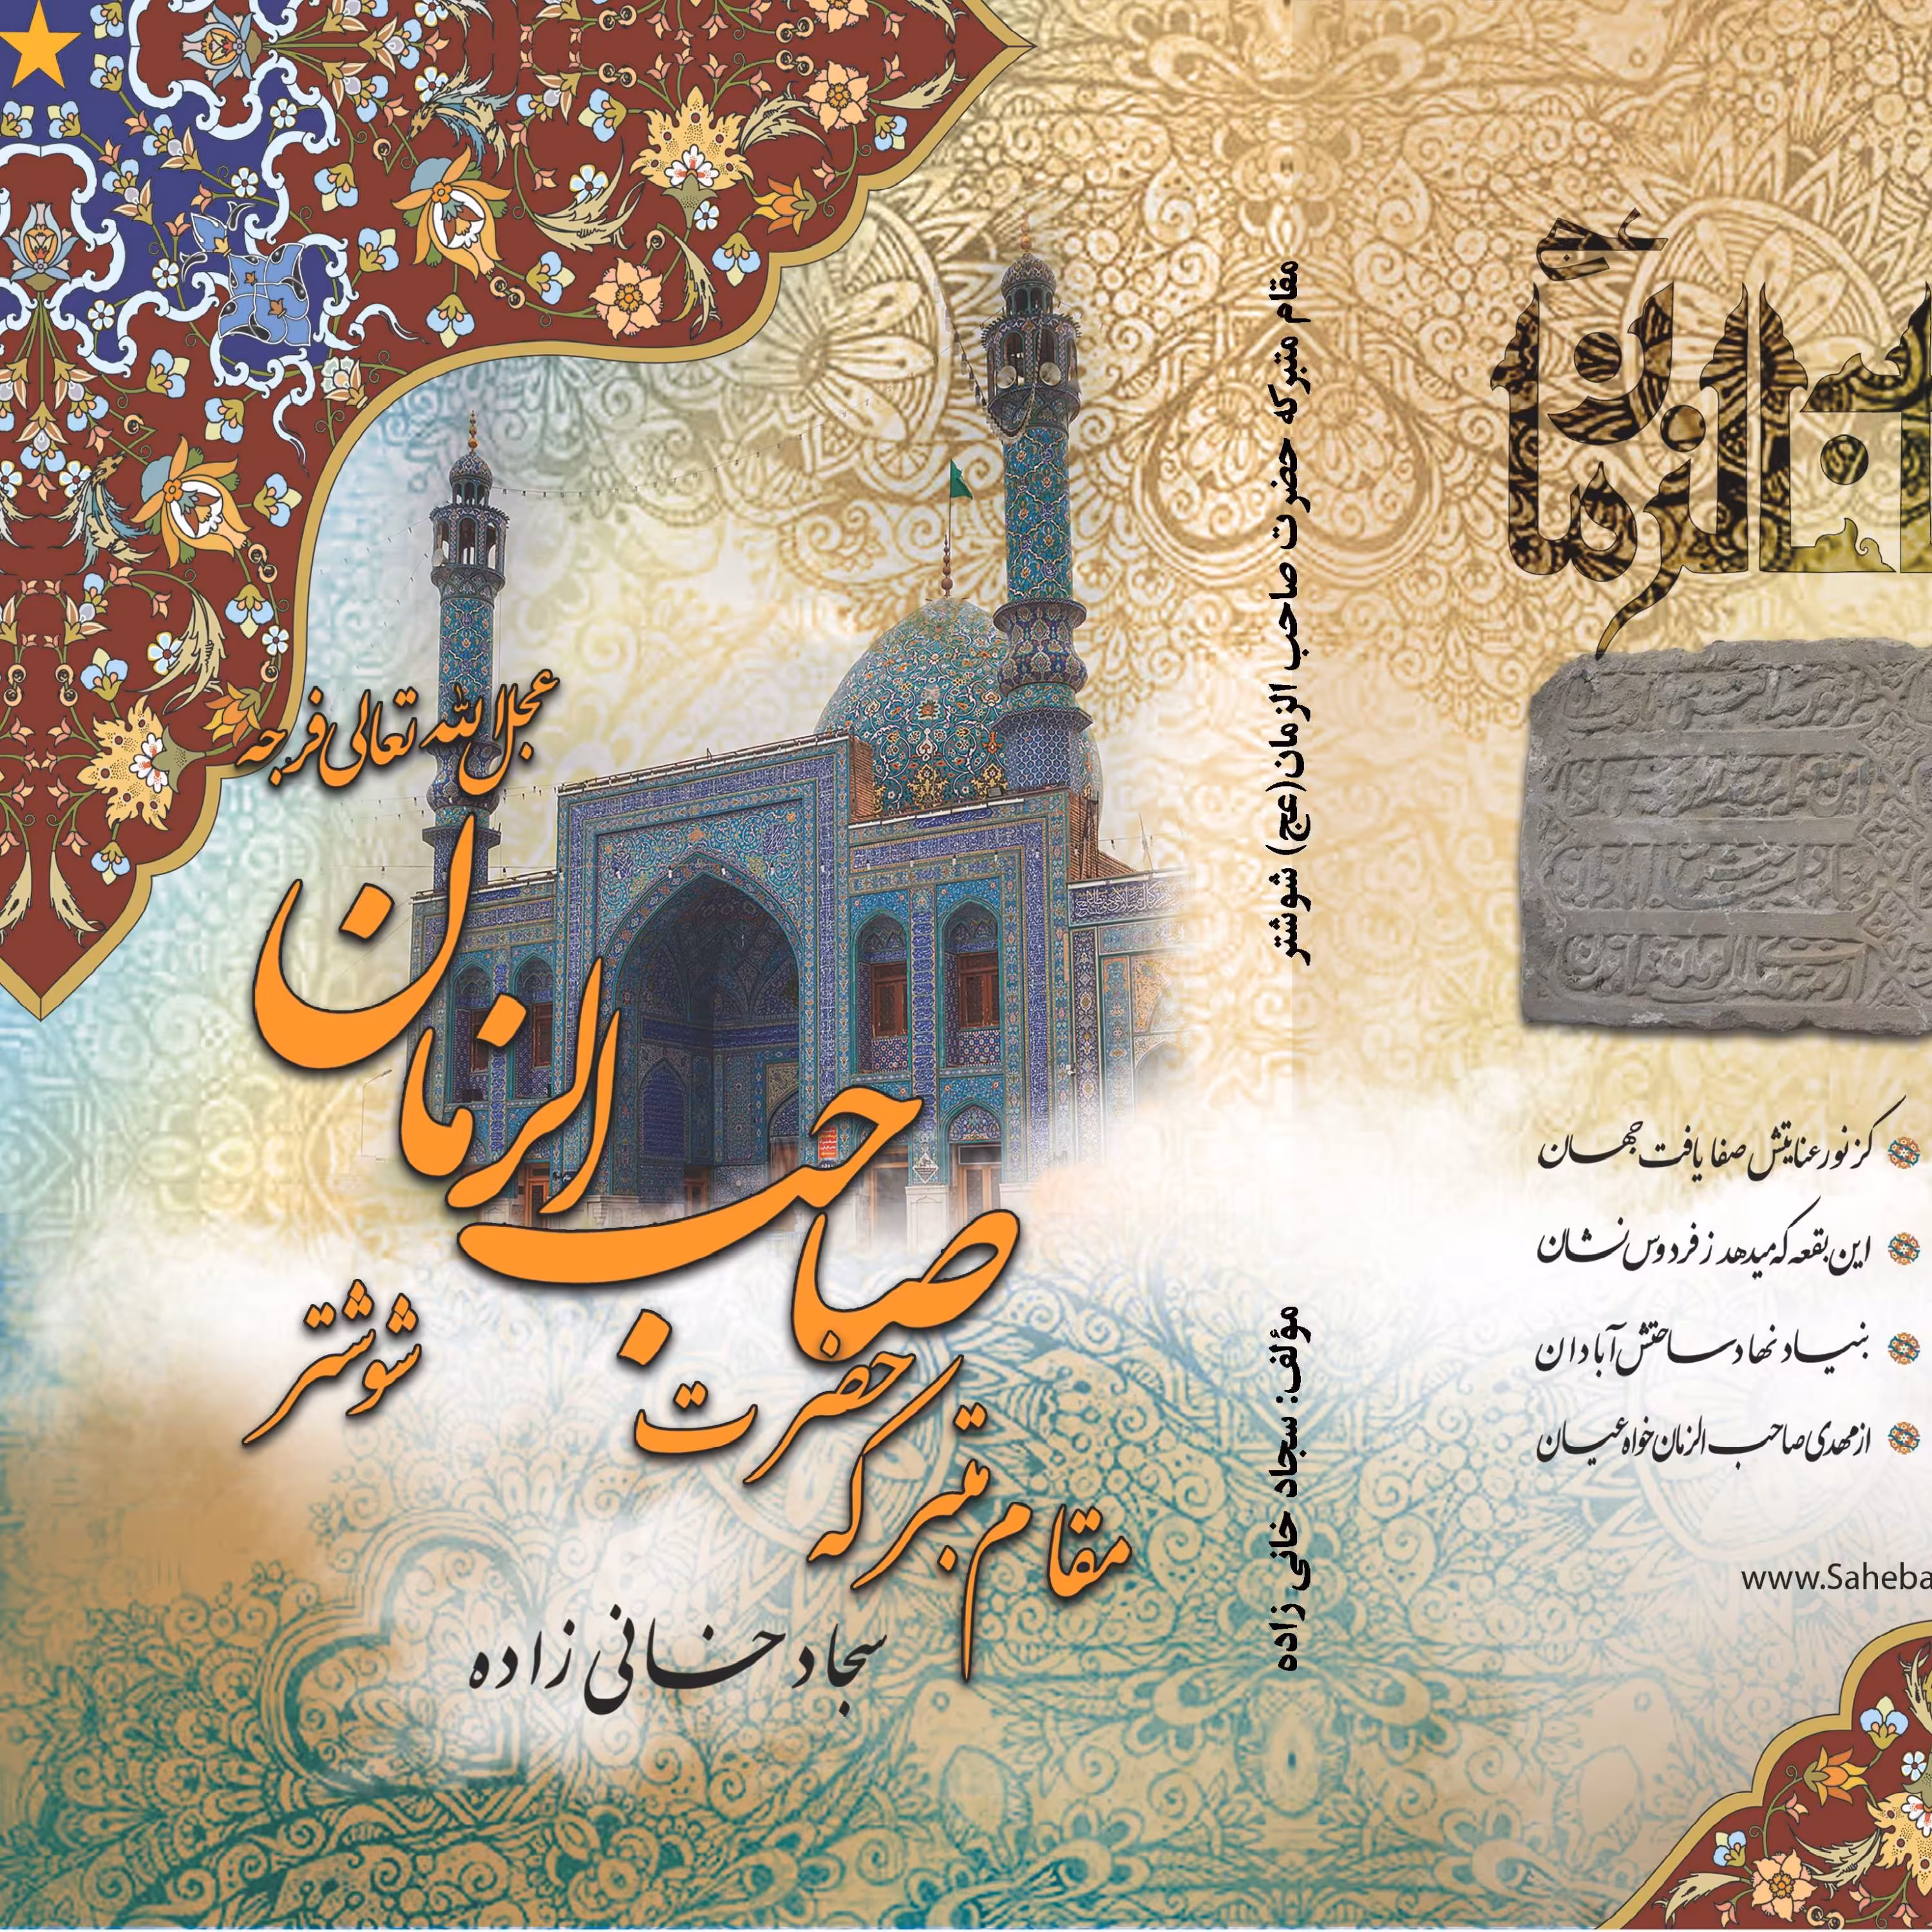 عجل الله تعالی فرجه
مقام متبرکه حضرت صاحب الزمان
شوشتر
سجاد خانی زاده
مقام متبرکه حضرت صاحب الزمان(عج) شوشتر
مؤلف: سجاد خانی زاده
عج
الزمان
کز نور عنایتش صفا یافت جهان
این بقعه که میدهد ز فردوس نشان
بنیاد نهاد ساحتش آبادان
از مهدی صاحب الزمان خواه عیان
www.Saheba